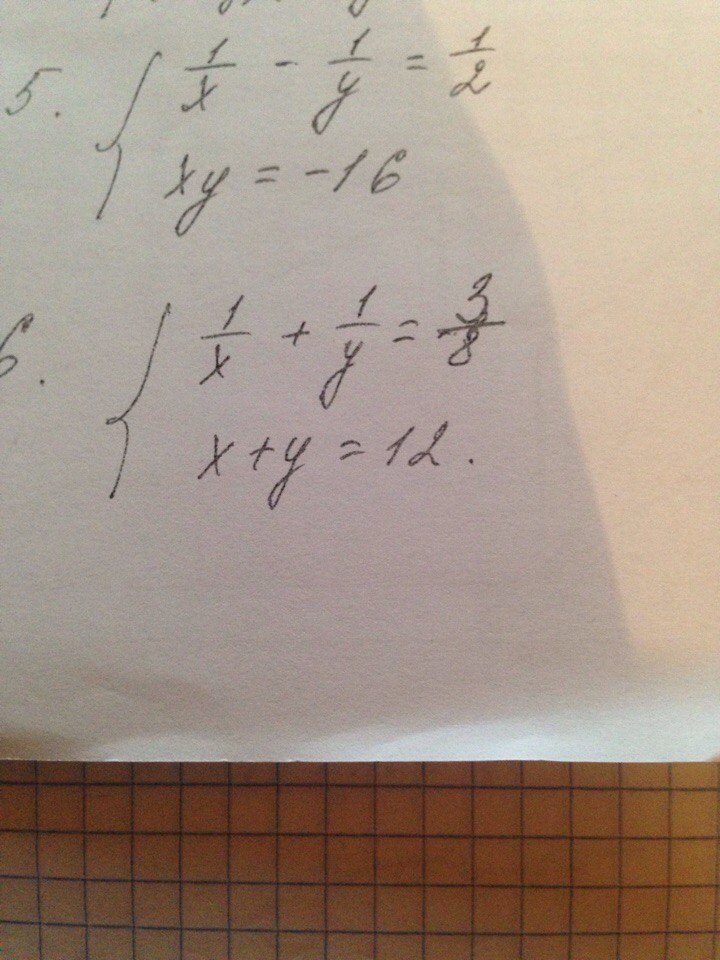 5. { 1/x - 1/y = 1/2
xy = -16
6. { 1/x + 1/y = 3/8
x+y = 12.